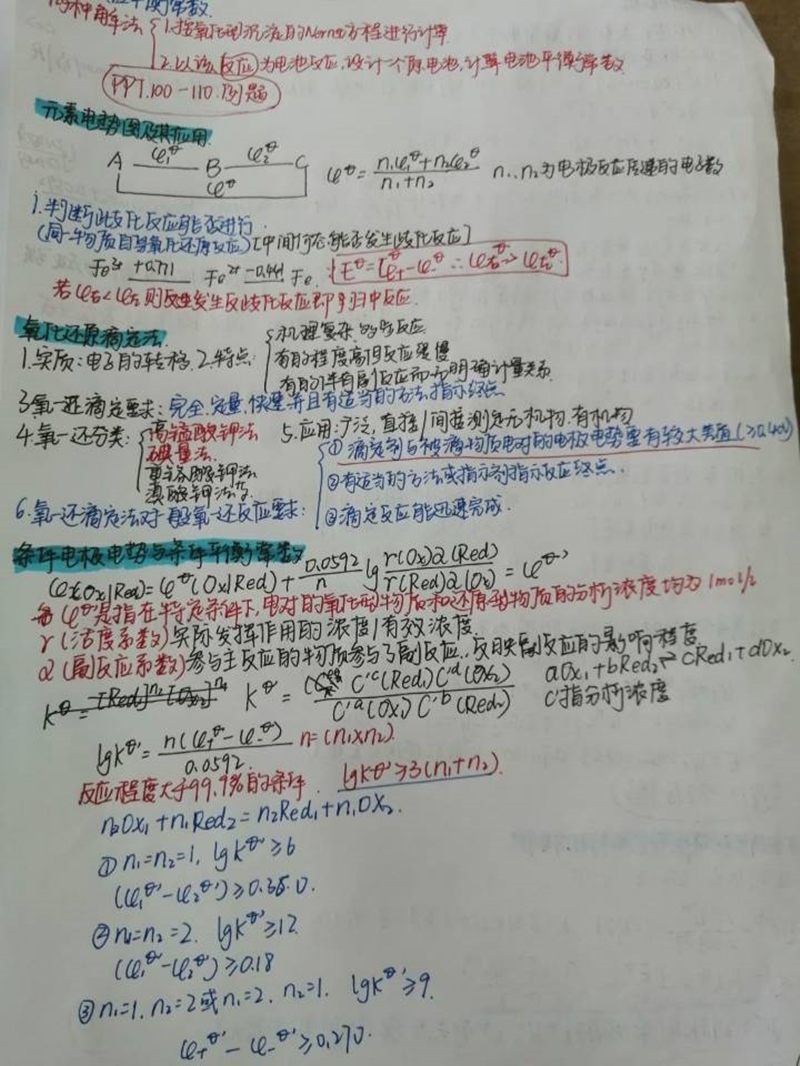 平衡常数.
两种解法 1.按氧化型/还原的Nernst方程进行计算
2.以该反应为电池反应,设计一个原电池,计算电池平衡常数
PPT.100-110.例题
元素电势图及其应用.
A φ₁^θ B φ₂^θ C φ^θ φ^θ = (n₁φ₁^θ+n₂φ₂^θ)/(n₁+n₂) n₁、n₂为电极反应传递的电子数
1.判断歧化反应能否进行
(同一物质自身氧化还原反应)[中间价态能否发生歧化反应]
Fe³⁺ +0.771 Fe²⁺ -0.441 Fe. E^θ=φ₊^θ-φ₋^θ ∴φ右^θ>φ左^θ.
若φ右<φ左则发生反歧化反应即归中反应.
氧化还原滴定法
1.实质:电子的转移. 2.特点: 机理复杂.多步反应
有的程度高但反应缓慢
有的伴有副反应而无明确计量关系.
3.氧-还滴定要求:完全.定量.快速.并且有适当的方法指示终点
4.氧-还分类: 高锰酸钾法 5.应用:广泛,直接/间接测定无机物.有机物
碘量法. ①滴定剂与被滴物质电对的电极电势要有较大差值(≥0.40V)
重铬酸钾法 ②有适当的方法或指示剂指示反应终点.
溴酸钾法等.
6.氧-还滴定法对一般氧-还反应要求: ③滴定反应能迅速完成.
条件电极电势与条件平衡常数
φ(Ox/Red)=φ^θ(Ox/Red)+ 0.0592/n lg r(Ox)α(Red)/r(Red)α(Ox) = φ^θ'
φ^θ'是指在特定条件下,电对的氧化型物质和还原型物质的分析浓度均为1mol/L
r(活度系数)实际发挥作用的浓度/有效浓度.
α(副反应系数)参与主反应的物质参与了副反应,反映副反应的影响程度
K^θ' = C'ᶜ(Red₁)C'ᵈ(Ox₂)/C'ᵃ(Ox₁)C'ᵇ(Red₂) aOx₁+bRed₂⇌cRed₁+dOx₂.
C'指分析浓度
lgK^θ'= n(φ₊^θ'-φ₋^θ')/0.0592 n=(n₁×n₂).
反应程度大于99.9%的条件. lgK^θ'≥3(n₁+n₂).
n₂Ox₁+n₁Red₂=n₂Red₁+n₁Ox₂.
①n₁=n₂=1, lgK^θ'≥6
(φ₁^θ'-φ₂^θ')≥0.35.0.
②n₁=n₂=2. lgK^θ'≥12.
(φ₁^θ'-φ₂^θ')≥0.18
③n₁=1.n₂=2或n₁=2.n₂=1. lgK^θ'≥9.
φ₊^θ'-φ₋^θ'≥0.270.